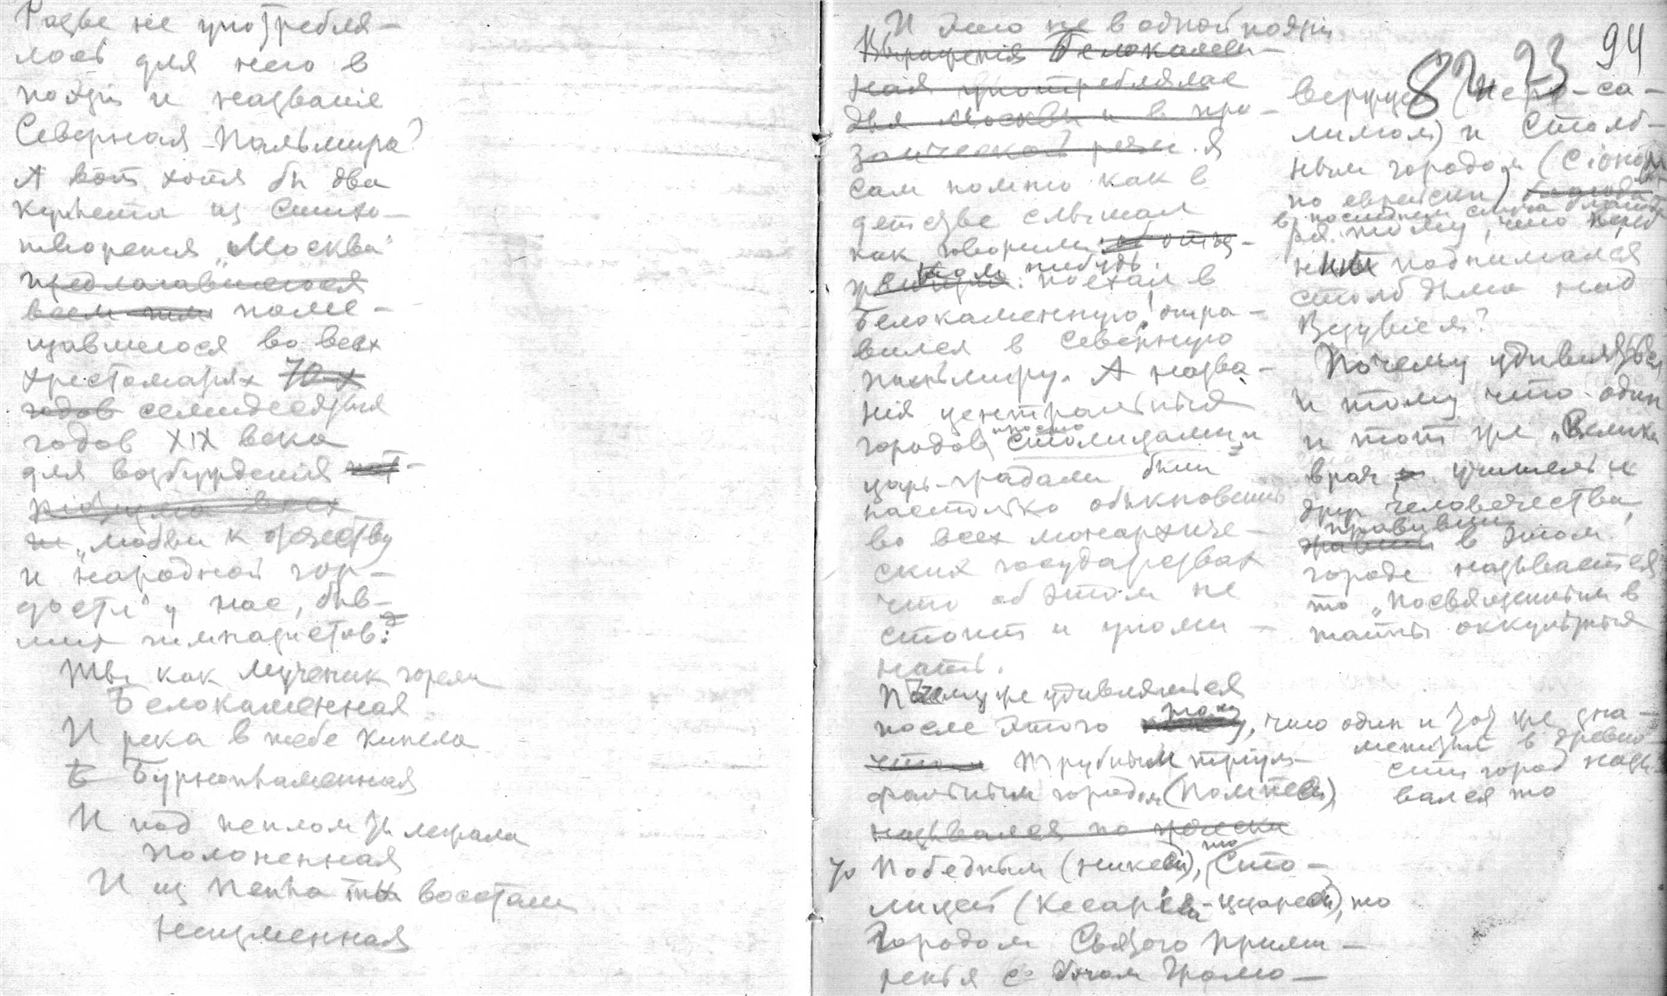 Разве не употребля-
лось для него в
поэзiи и названiе
Северная Пальмира?
А вот хотя бы два
куплета из стихо-
творенiя „Москва"
предлагавшегося
всем поме-
щавшегося во всех
хрестоматiях 70-х
годов семидесятых
годов XIX века
для возбужденiя
„любви к отечеству
и народной гор-
дости" у нас, быв-
ших гимназистов:
Ты как мученик горела
Белокаменная
И река в тебе кипела
Бурнопламенная
И под пеплом ты лежала
Полоненная
И из пепла ты восстала
Неизменная
94
82 23
И это не в одной поэзiи
Выраженiя Белокамен-
ная употреблялась
для Москвы и в про-
заической речи. Я
сам помню как в
детстве слышал
как говорили:
кто нибудь поехал в
Белокаменную! отпра-
вился в Северную
Пальмиру. А назва-
нiя центральных
городов просто столицами и
царь-градами были
настолько обыкновенны
во всех монархиче-
ских государствах
что об этом не
стоит и упоми-
нать.
Почему же удивляться
после этого тому, что один и тот же зна-
менитый в древно-
сти город назы-
вался то
Трубным трiум-
фальным городом (Помпеей),
назывался по
Победным (Никеей), то Сто-
лицей (Кесарiей-Цзареей), то
Городом Святого Прими-
ренья с Богом Громо-
вержцем (Iеро-са-
лимом) и Столб-
ным городом (Сiоном
по еврейски)
в последнем случае благода-
ря тому, что перед
ним поднимался
столб дыма над
Везувiем?
Почему удивляться
и тому что один
и тот же „Велики
врач и учитель и
друг человечества,
правивши в этом
городе называется
то „Посвященным в
тайны оккультных